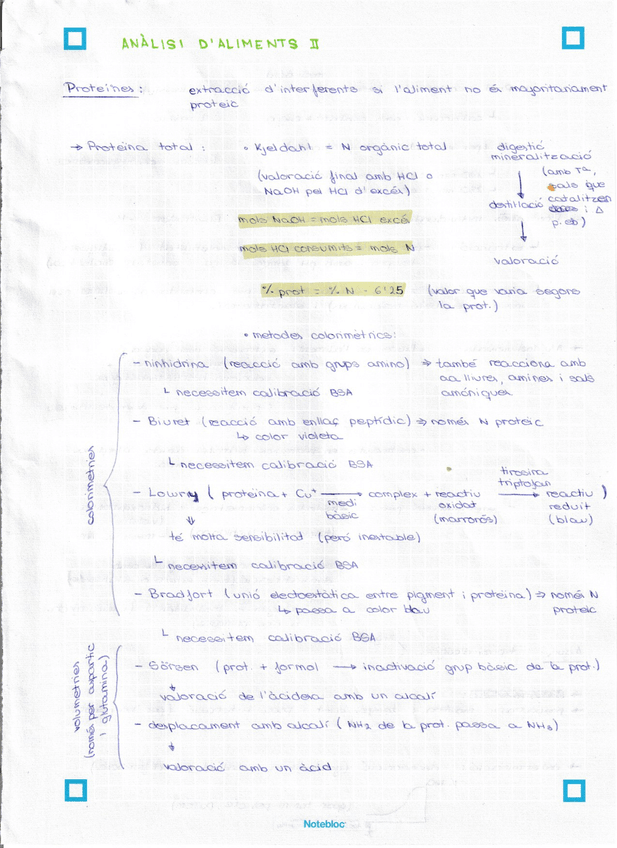 ANÀLISI D'ALIMENTS II
Proteïnes: extracció d'interferents si l'aliment no és majoritariament
proteic
→ Proteina total: • Kjeldahl = N orgànic total
(valoració final amb HCl o
NaOH pel HCl d'excés)
mols NaOH = mols HCl excés
mols HCl consumits = mols N
% prot = % N · 6'25 (valor que varia segons
la prot.)
digestió
mineralització
(amb Tª,
sals que
catalitzen
i Δ
p.eb)
destil·lació
valoració
• metodes colorimètrics:
colorimetries
- ninhidrina (reacció amb grups amino) ⇒ també reacciona amb
aa lliures, amines i sals
amòniques
└ necessitem calibració BSA
- Biuret (reacció amb enllaç peptídic) ⇒ només N proteic
↳ color violeta
└ necessitem calibració BSA
- Lowry ( proteina + Cu⁺ → complex + reactiu → reactiu )
medi
bàsic
oxidat
(marronós)
tirosina
triptofan
reduït
(blau)
⇓
té molta sensibilitat (però inestable)
└ necessitem calibració BSA
- Bradfort (unió electoestàtica entre pigment i proteina) ⇒ només N
proteic
↳ passa a color blau
└ necessitem calibració BSA
volumetries
(només per aspartic
i glutamina)
- Sörsen (prot + formol → inactivació grup bàsic de la prot.)
↓
valoració de l'àcidesa amb un alcalí
- desplaçament amb alcalí (NH2 de la prot. passa a NH3)
↓
valoració amb un àcid
Notebloc